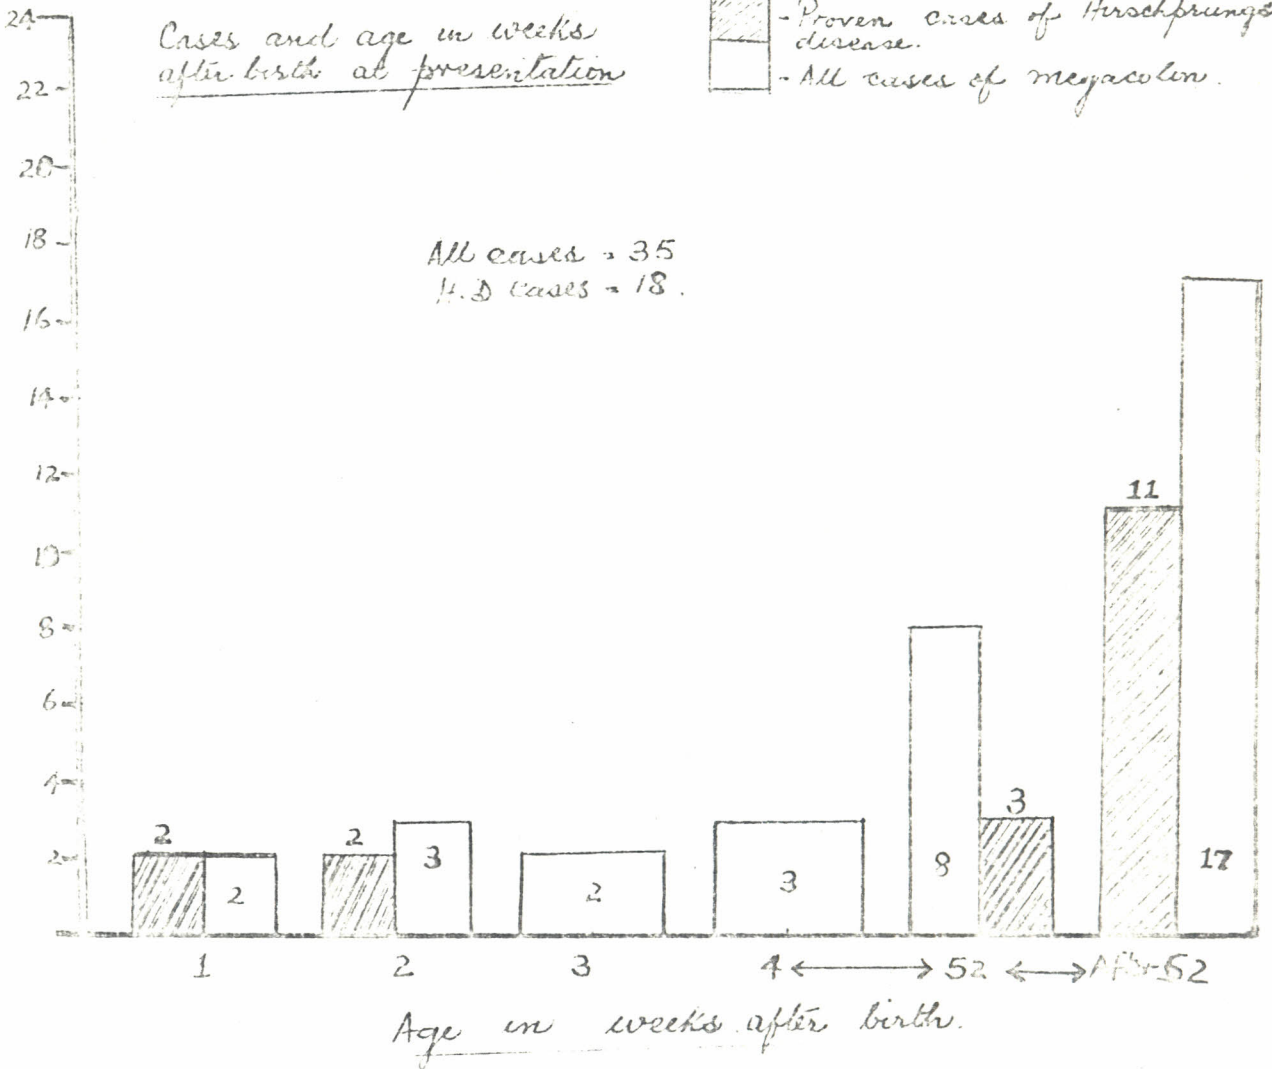 Cases and age in weeks
after birth at presentation
- Proven cases of Hirschprungs
disease.
- All cases of megacolon.
All cases = 35
H.D cases = 18.
24
22
20
18
16
14
12
10
8
6
4
2
2
2
2
3
2
3
8
3
11
17
1 2 3 4 ←→ 52 ←→ After 52
Age in weeks after birth.